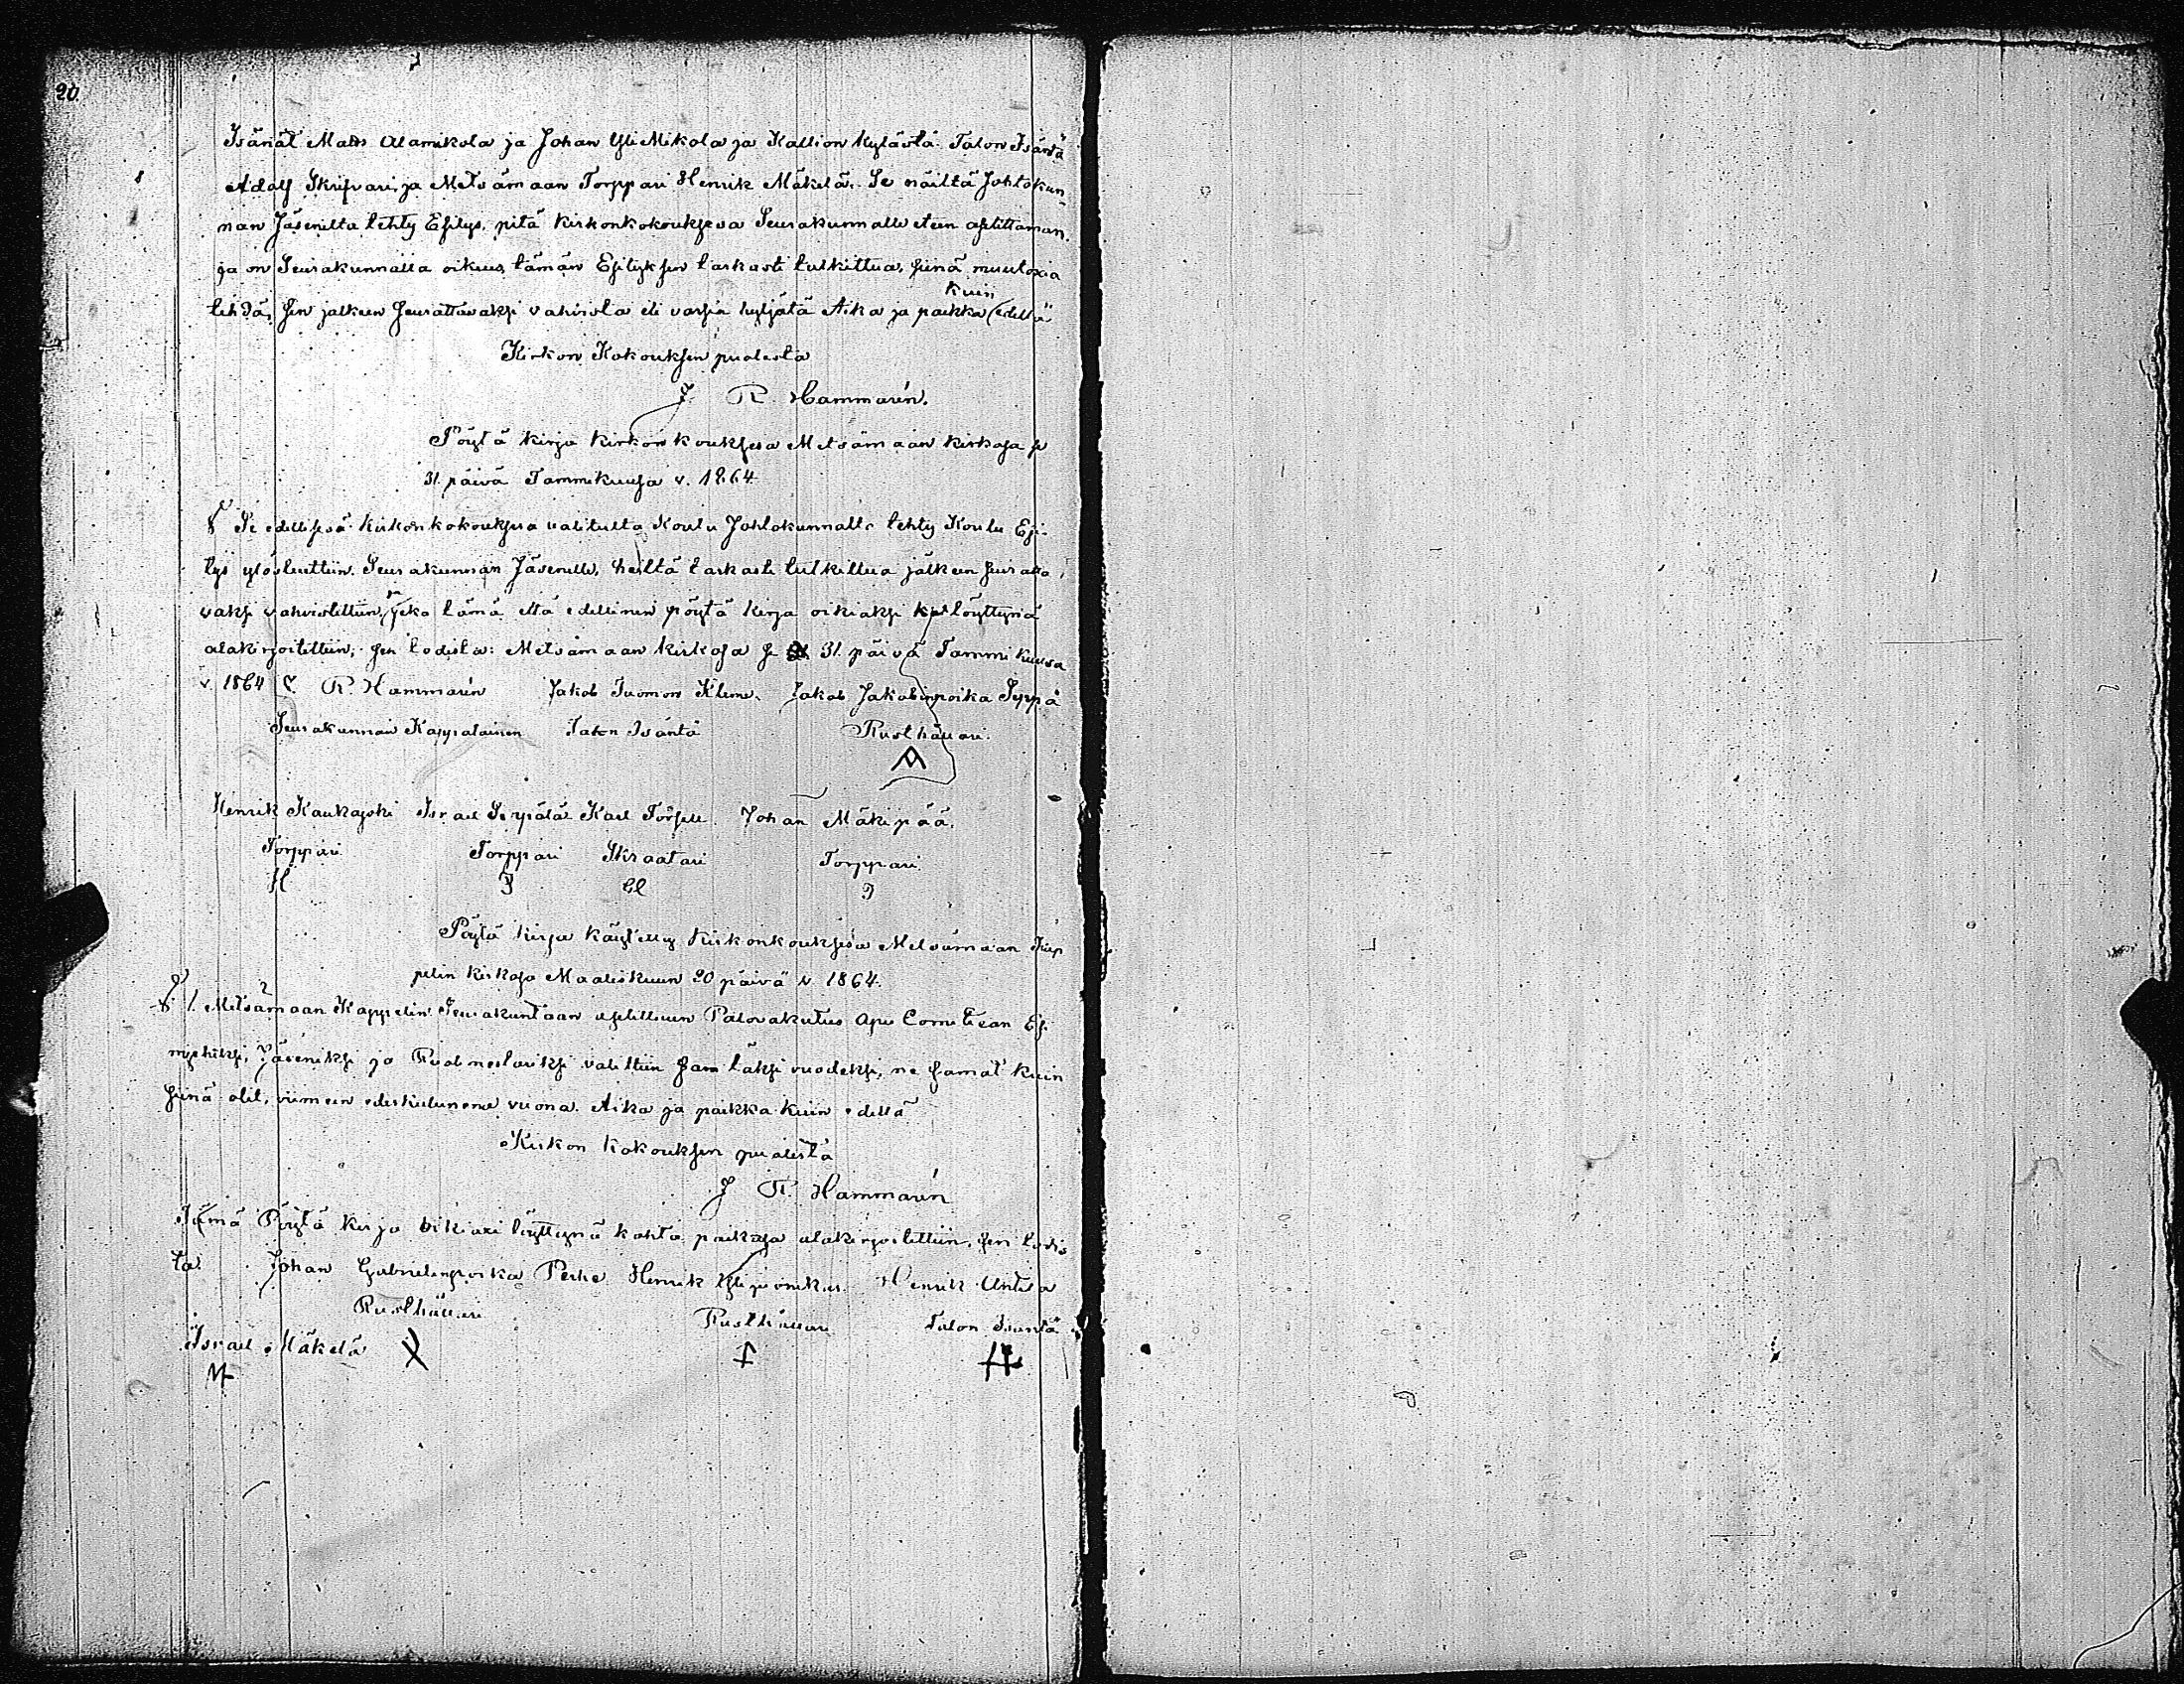 20.
Isänät Matts Alamikola ja Johan YliMikola ja Kallion kylästä Talon Isäntä
Adolf Skrifvari, ja Metsämaan Torppari Henrik Mäkelä. Se näiltä Johtokun-
nan Jäseniltä tehty Esitys, pitä kirkonkokouksesa Seurakunnalle eteen asetettaman,
ja on Seurakunnalla oikeus, tämän Esityksen tarkasti tutkittua, siinä muutoxia
tehdä, sen jälkeen seurattavaksi vahvista eli varsin hyljätä Aika ja paikka kuin edellä
Kirkon Kokouksen puolesta
J R Hammarén.
Pöytä kirja kirkonkouksesa Metsämaan kirkosa se
31. päivä Tammikuusa v. 1864.
§ Se edellisesä kirkonkokouksesa valitulta Koulu Johtokunnalta tehty Koulu Esi-
tys ylösluettiin Seurakunnan Jäsenille, heiltä tarkasti tutkittua jälkeen seuratta,
vaksi vahvistettiin, ja joka tämä että edellinen pöytä kirja oikiaksi löyttynä
alakirjoitettiin; sen todista: Metsämaan kirkosa se 31. päivä Tammikuusa
v. 1864 J. R. Hammarén Jakob Tuomon Klemi. Jakob Jakobinpoika Seppä
Seurakunnan Kappalainen Talon Isäntä Rusthållari.
Henrik Kaukajoki Israel Seppälä Karl Törfell Johan Mäkipää.
Torppari Torppari Skraatari Torppari
H Cl J
Pöytä kirja käytetty kirkonkouksesa Metsämaan Kap
pelin kirkosa Maaliskuun 20 päivä v. 1864.
§ 1. Metsämaan Kappelin Seurakuntaan asetettuun Palovakutus Apu Comitean Esi
miehiksi, Jäseniksi ja Ruodmestariksi valittiin täksi vuodeksi, ne samat kuin
siinä olit, viimeen edeskulunena vuona. Aika ja paikka kuin edellä
Kirkon kokouksen puolesta
J R. Hammarén
Tämä Pöytä kirja oikiaxi löyttynä kahta paikasa alakirjoitettiin, sen todis
ta Johan Gabrielinpoika Perhe Henrik Ylijoonikas. Henrik Anttila
Rusthållari Rusthållari Talon Isäntä
Israel Mäkelä